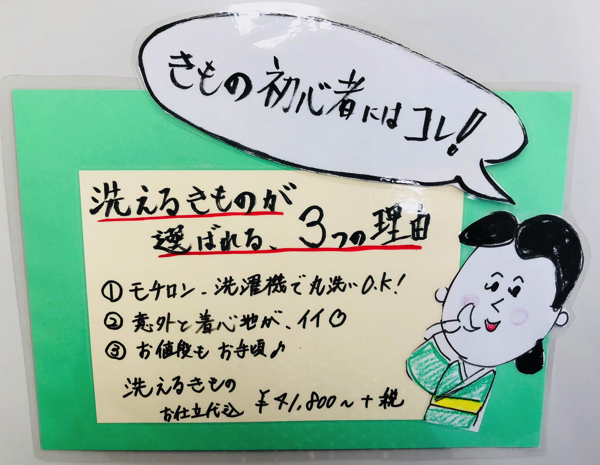 きもの初心者にはコレ!
洗えるきものが
選ばれる、3つの理由
① モチロン、洗濯機で丸洗いO.K!
② 意外と着心地が、イイ○
③ お値段もお手頃♪
洗えるきもの
お仕立代込 ¥41,800~+税